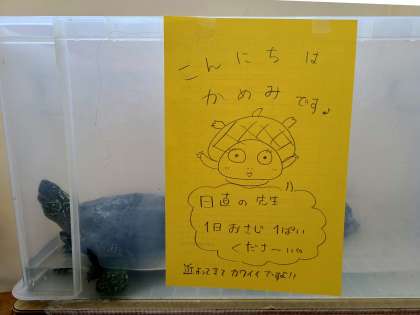 こんにちは
かめみです♪
日直の先生
1日おさじ1ぱい
くださーいい
近よってきて カワイイ ですよ!!